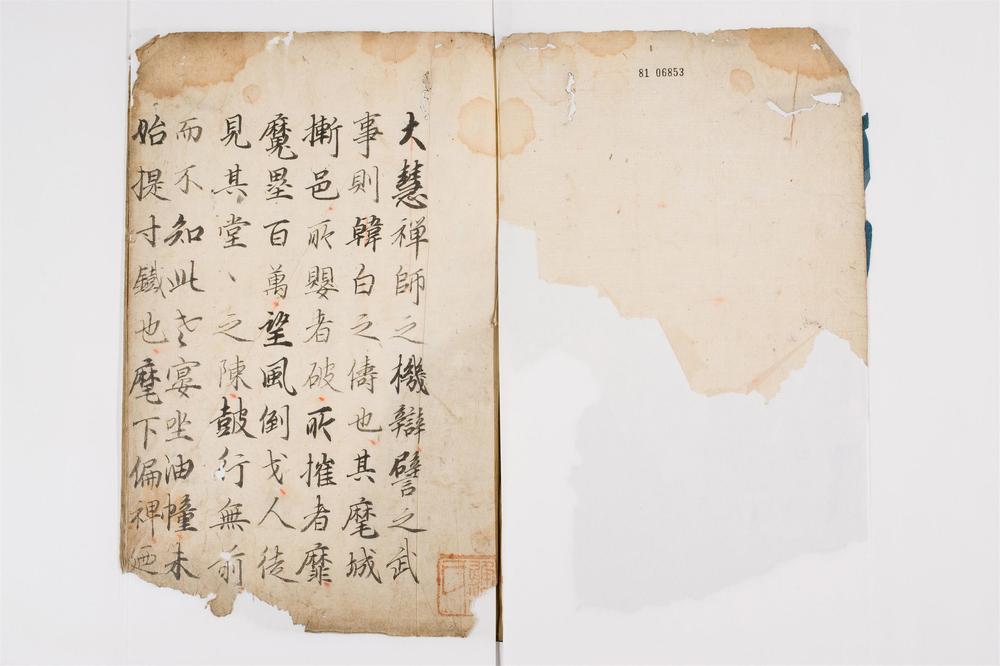 大慧禅師之機辯譬之武
事則韓白之儔也其麾城
摲邑所嬰者破所摧者靡
魔壘百萬望風倒戈人徒
見其堂〻之陳鼓行無前
而不知此老宴坐油幢未
始提寸鐵也麾下偏裨廼
81 06853